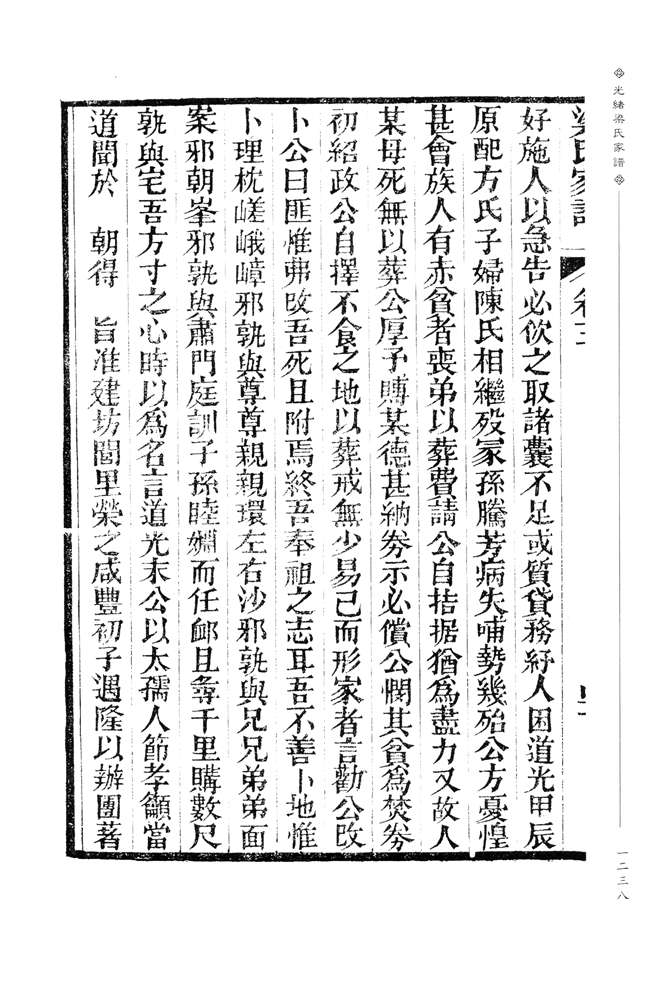 光緒梁氏家譜
一二三八
梁氏家譜 卷十二
好施人以急告必饮之取諸囊不足或質貸務紓人困道光甲辰
原配方氏子婦陳氏相繼殁冢孫騰芳病失哺勢幾殆公方憂惶
甚會族人有赤貧者喪弟以葬費請公自拮据猶為盡力又故人
某母死無以葬公厚予賻某德甚納劵示必償公憫其貧為焚劵
初紹政公自擇不食之地以葬戒無少易已而形家者言勸公改
卜公曰匪惟弗改吾死且附焉終吾奉祖之志耳吾不善卜地惟
卜理枕嵯峨嶂邪孰與尊尊親親環左右沙邪孰與兄兄弟弟面
案邪朝峯邪孰與肅門庭訓子孫睦婣而任卹且尋千里購數尺
孰與宅吾方寸之心時以為名言道光末公以太孺人節孝籲當
道聞於　朝得　旨准建坊閭里榮之咸豐初子遇隆以辦團著